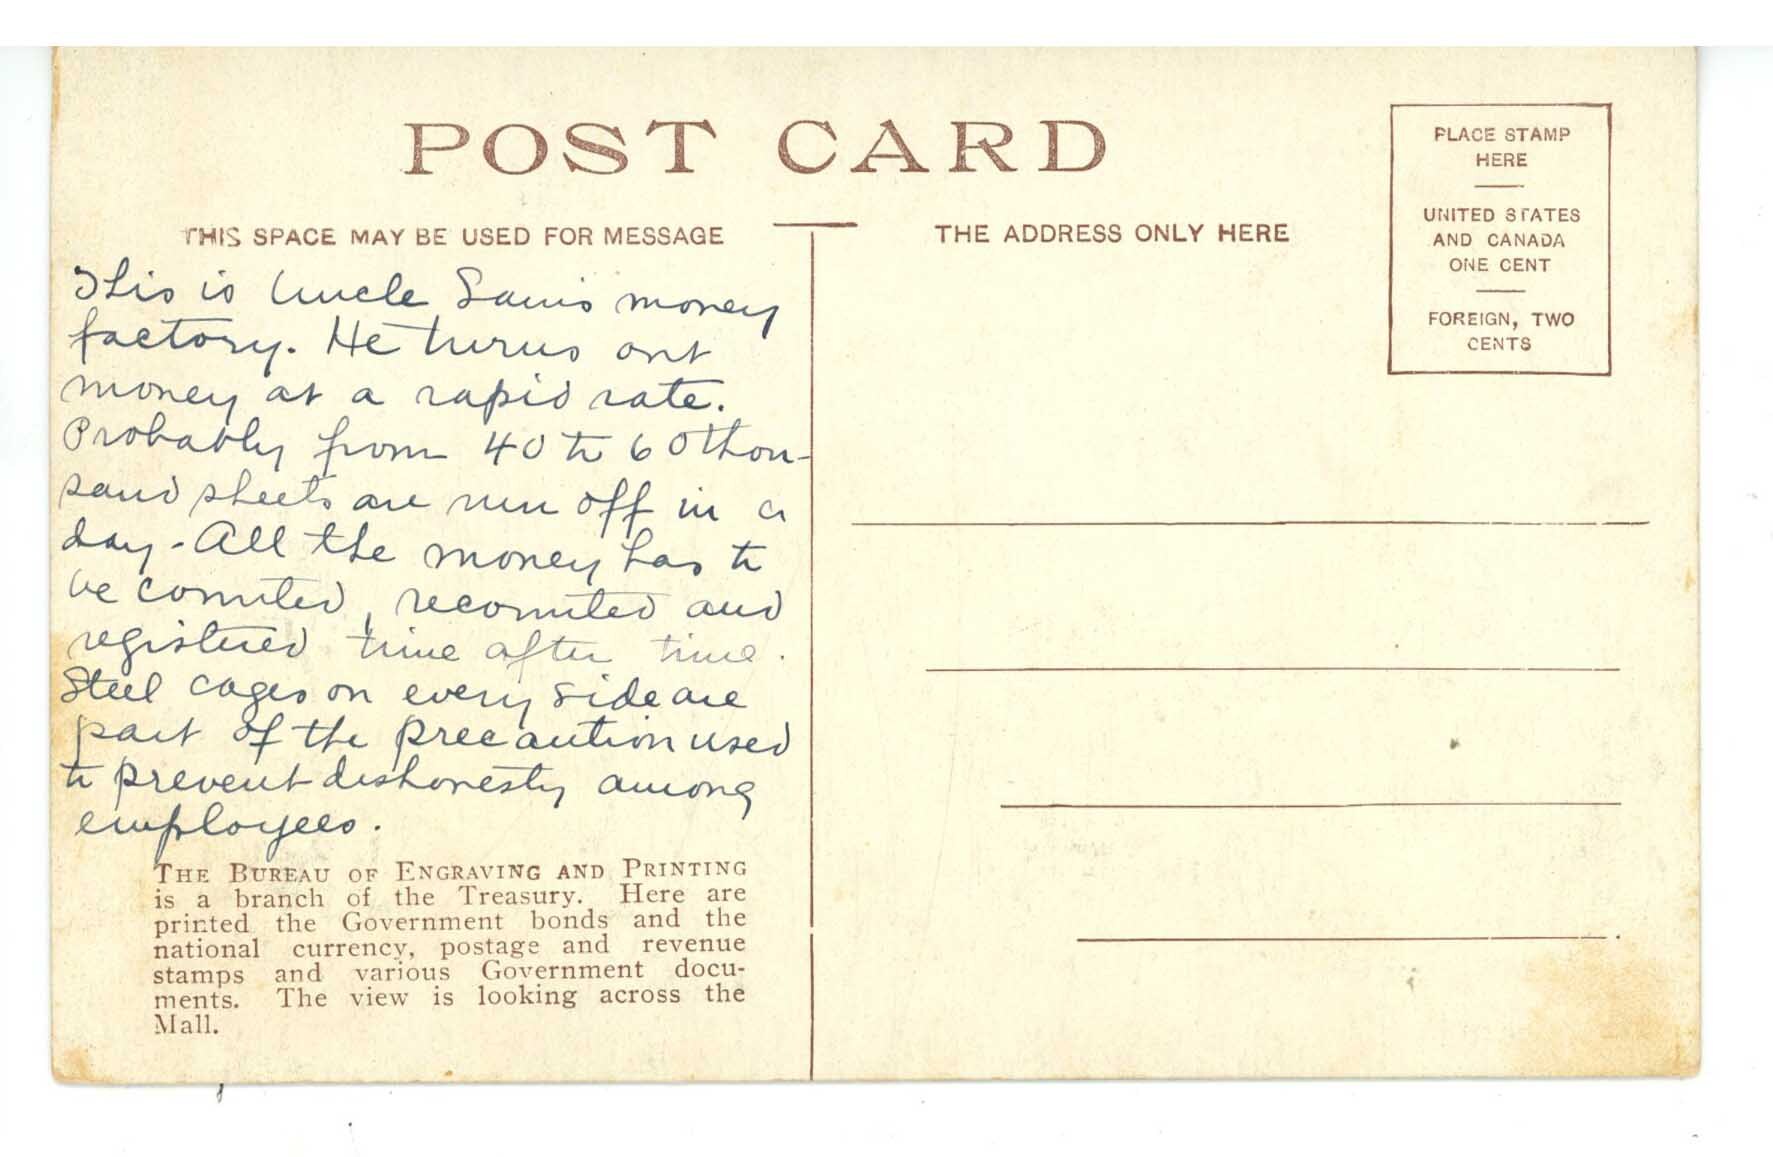 POST CARD
PLACE STAMP
HERE
UNITED STATES
AND CANADA
ONE CENT
FOREIGN, TWO
CENTS
THIS SPACE MAY BE USED FOR MESSAGE
THE ADDRESS ONLY HERE
This is Uncle Sam's money
factory. He turns out
money at a rapid rate.
Probably from 40 to 60 thou-
sand sheets are run off in a
day - All the money has to
be counted, recounted and
registered time after time.
Steel cages on every side are
part of the precaution used
to prevent dishonesty among
employees.
THE BUREAU OF ENGRAVING AND PRINTING
is a branch of the Treasury. Here are
printed the Government bonds and the
national currency, postage and revenue
stamps and various Government docu-
ments. The view is looking across the
Mall.